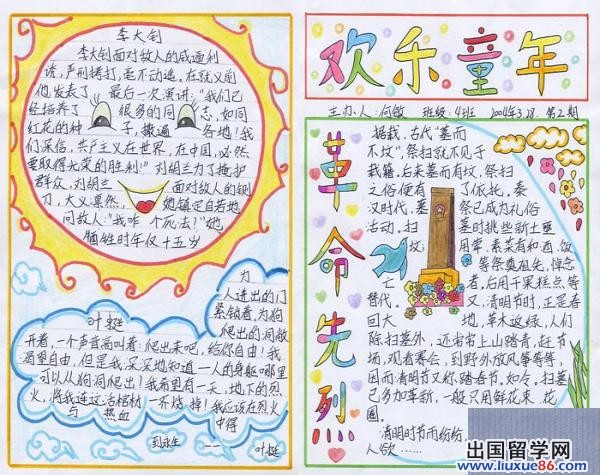 李大钊
李大钊面对敌人的威逼利
诱，严刑拷打，毫不动遥，在就义前
他发表了最后一次演讲："我们已
经培养了很多的同志，如同
红花的种子，撒遍各地！我
们深信，共产主义在世界，在中国，必然
要取得光荣的胜利！"刘胡兰为了掩护
群众，刘胡兰面对敌人的铡
刀，大义凛然，她镇定自若地
问敌人："我咋个死法？"她
牺牲时年仅十五岁
叶挺
为
人进出的门
紧锁着，为狗
爬出的洞敞
开着，一个声音高叫着：爬出来吧，给你自由！我
渴望自由，但是我深深地知道一人的身躯哪里
可以从狗洞爬出！我希望有一天，地下的烈
火，将我连这活棺材一齐烧掉！我应该在烈火
与热血中得
到永生
——叶挺
欢乐童年
主办人：何敏 班级：4班 2004年3.28 第2期
革命先烈
据载，古代"墓而
不坟"，祭扫就不见于
载籍。后来墓而有坟，祭扫
之俗便有了依托。秦
汉时代，墓祭已成为礼俗
活动，扫墓时挑些新土壅
坟；用荤、素菜肴和酒、饭
等祭奠祖先，悼念
亡者，后用干果糕点等
替代。又清明节时，正是春
回大地，草木返绿，人们
除扫墓外，还常常上山踏青，赶节
场，观看赛会，到野外放风筝等等，
因而清明节又称踏春节。如今，扫墓
已多加革新，一般只用鲜花束、花
圈。
清明时节雨纷纷，
人欲……
出国留学网
www.liuxue86.com